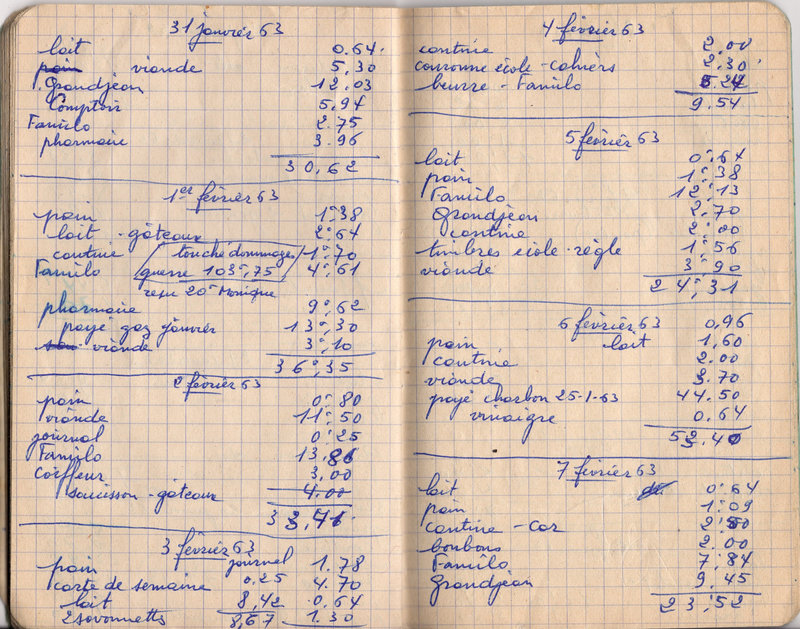 31 janvier 63
lait 0.64
viande 5,30
Grandjean 12,03
Comptoir 5,94
Familo 2.75
pharmacie 3.96
30,62
1er février 63
pain 1°38
lait - gâteaux 2°64
cantine 1°70
touché dommages
Familo 4°,61
guerre 103°,75
reçu 20° Monique
pharmacie 9°,62
payé gaz janvier 13°,30
viande 3°,10
36°,35
2 février 63
pain 0°80
viande 11°50
journal 0°25
Familo 13,86
coiffeur 3,00
saucisson - gâteaux 4.00
33,41
3 février 63
pain journal 1.78
carte de semaine 0,25 4.70
lait 8,42 0.64
2 savonnetts 8,67 1.30
4 février 63
cantine 2,00
couronne école - cahiers 2,30
beurre - Familo 5.24
9.54
5 février 63
lait 0°,64
pain 1°,38
Familo 12°,13
Grandjean 2,70
cantine 2°,00
timbres école - règle 1°,56
viande 3°,90
24°,31
6 février 63 0,96
pain lait 1,60
cantine 2.00
viande 3.70
payé charbon 25-1-63 44.50
vinaigre 0.64
53.40
7 février 63
lait 0°64
pain 1°09
cantine - car 2°50
bonbons 2.00
Familo 7,84
Grandjean 9.45
23,52